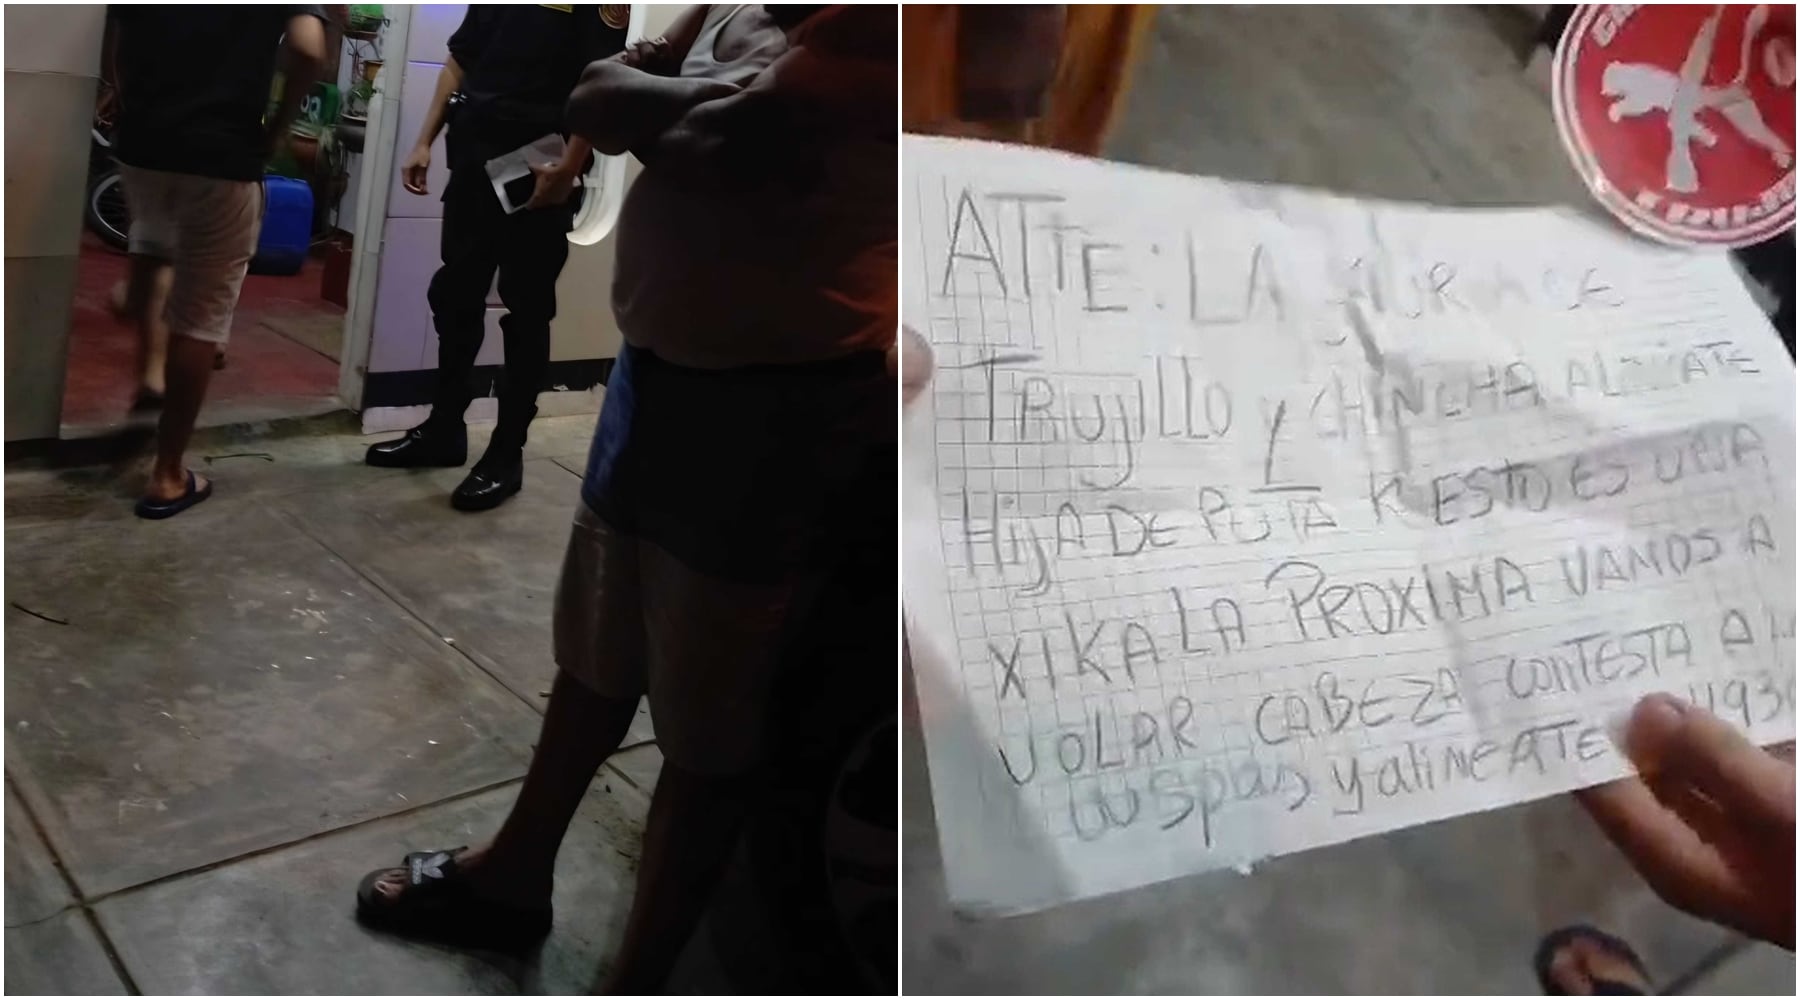 ATTE: LA JURA DE
TRUJILLO Y CHINCHA ALINEATE
HIJA DE PUTA K ESTO ES UNA
XIKA LA PROXIMA VAMOS A
VOLAR CABEZA CONTESTA A
WSPAS y alineATE